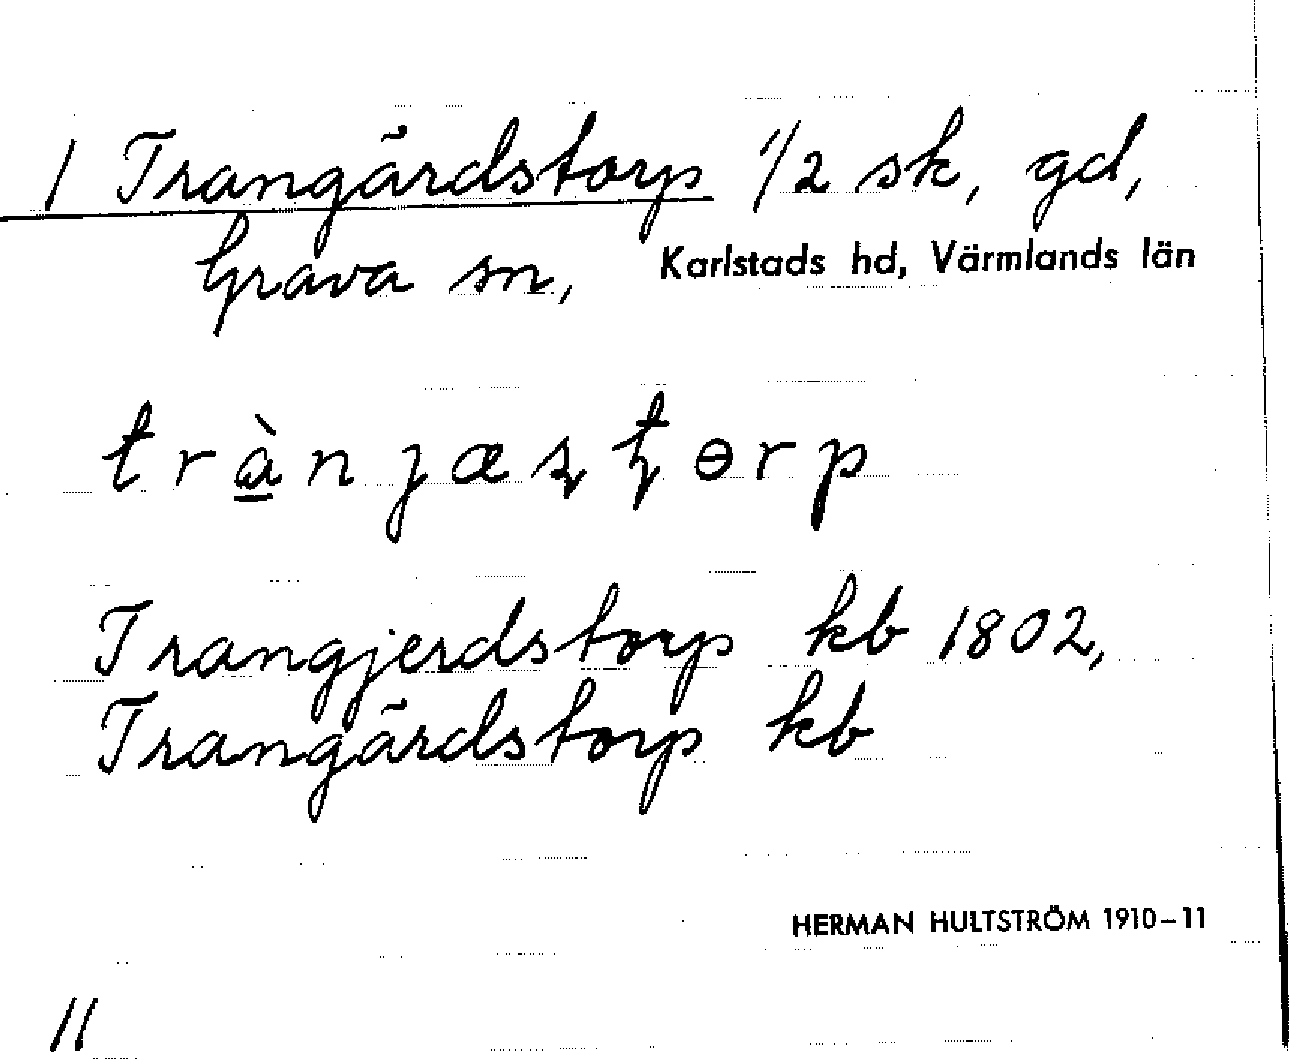 1 Trangärdstorp 1/2 sk, gd,
Grava sn, Karlstads hd, Värmlands län
trànjæsʈɵrp
Trangjerdstorp kb 1802,
Trangärdstorp kb
HERMAN HULTSTRÖM 1910–11
11